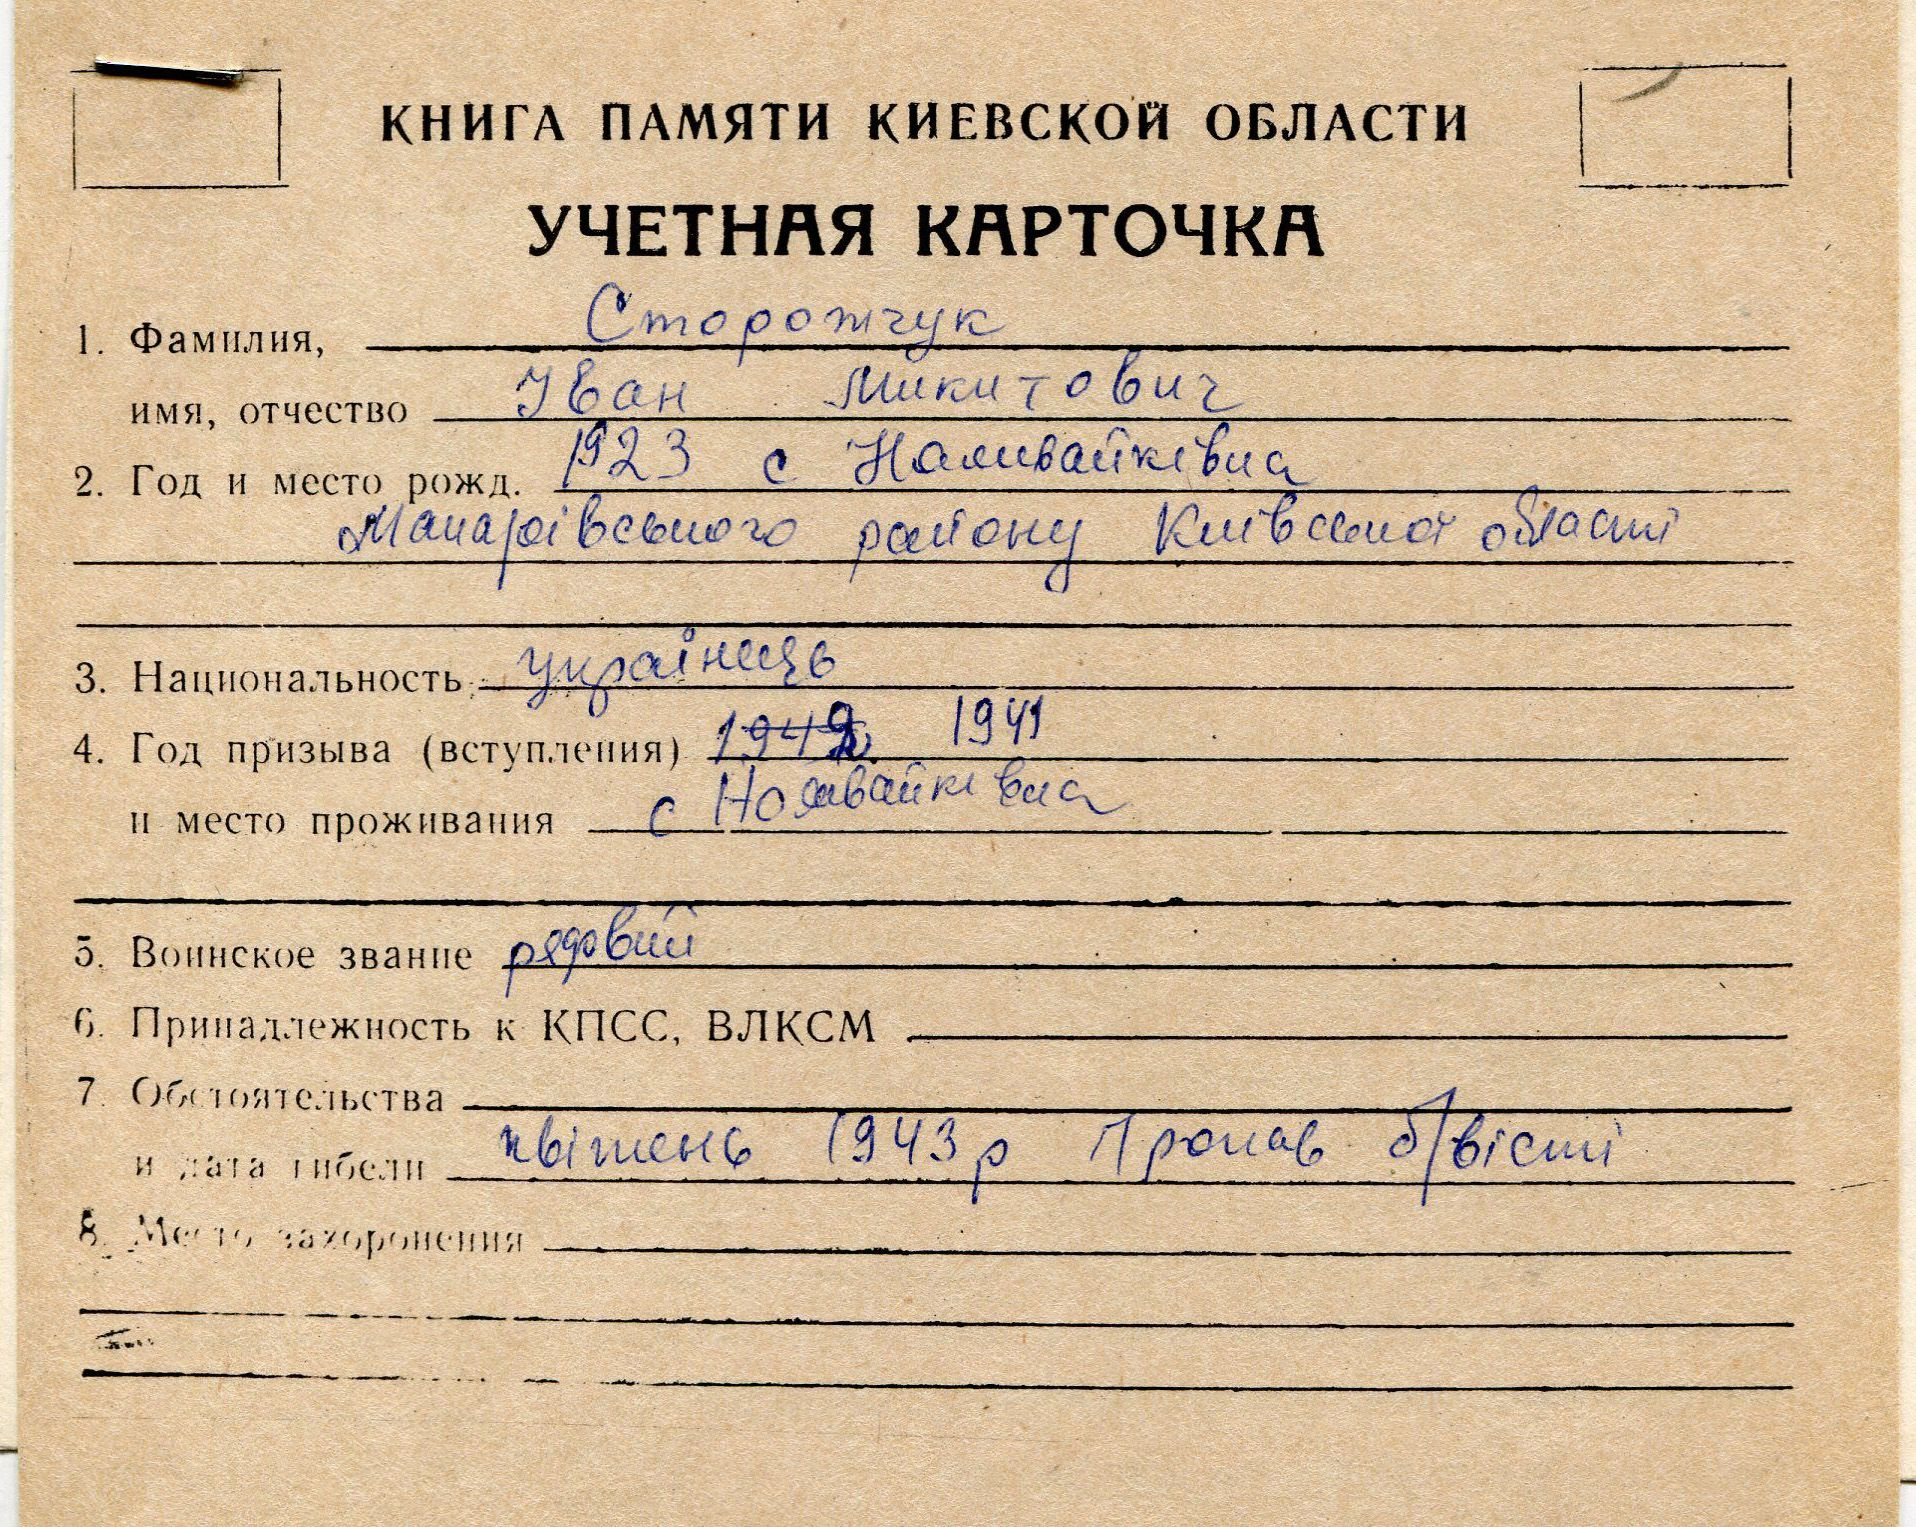 КНИГА ПАМЯТИ КИЕВСКОЙ ОБЛАСТИ
УЧЕТНАЯ КАРТОЧКА
1. Фамилия, Сторожчук
имя, отчество Іван Микитович
2. Год и место рожд. 1923 с Наливайківка
Макарівського району Київської області
3. Национальность українець
4. Год призыва (вступления) 1942 1941
и место проживания с Наливайківка
5. Воинское звание рядовий
6. Принадлежность к КПСС, ВЛКСМ
7. Обстоятельства
и дата гибели квітень 1943 р Пропав б/вісті
8. Место захоронения